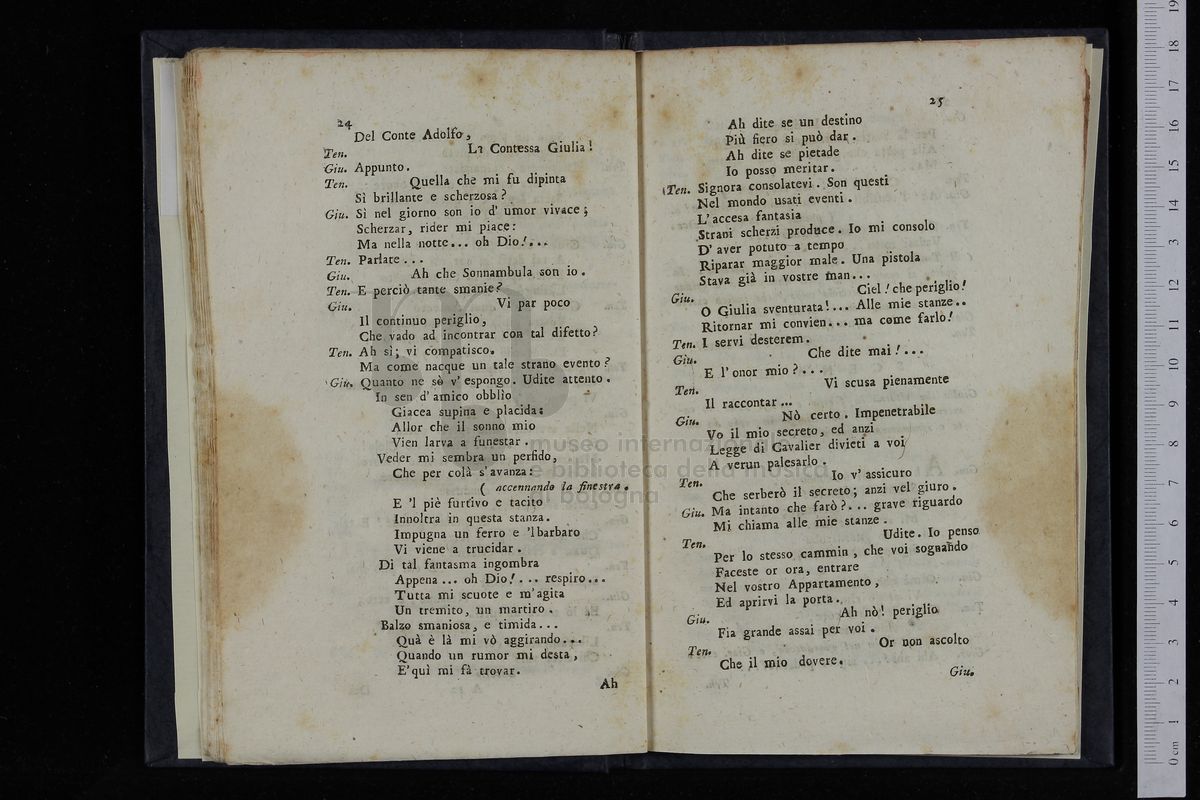 24
Del Conte Adolfo,
Ten. La Contessa Giulia!
Giu. Appunto.
Ten. Quella che mi fu dipinta
Sì brillante e scherzosa?
Giu. Sì nel giorno son io d' umor vivace;
Scherzar, rider mi piace:
Ma nella notte... oh Dio!...
Ten. Parlate...
Giu. Ah che Sonnambula son io.
Ten. E perciò tante smanie?
Giu. Vi par poco
Il continuo periglio,
Che vado ad incontrar con tal difetto?
Ten. Ah sì; vi compatisco.
Ma come nacque un tale strano evento?
Giu. Quanto ne sò v' espongo. Udite attento.
In sen d' amico obblio
Giacea supina e placida:
Allor che il sonno mio
Vien larva a funestar.
Veder mi sembra un perfido,
Che per colà s' avanza:
( accennando la finestra.
E 'l piè furtivo e tacito
Innoltra in questa stanza.
Impugna un ferro e 'l barbaro
Vi viene a trucidar.
Di tal fantasma ingombra
Appena... oh Dio!... respiro...
Tutta mi scuote e m' agita
Un tremito, un martiro.
Balzo smaniosa, e timida...
Quà è là mi vò aggirando...
Quando un rumor mi desta,
E' quì mi fà trovar.
Ah
25
Ah dite se un destino
Più fiero si può dar.
Ah dite se pietade
Io posso meritar.
Ten. Signora consolatevi. Son questi
Nel mondo usati eventi.
L' accesa fantasia
Strani scherzi produce. Io mi consolo
D' aver potuto a tempo
Riparar maggior male. Una pistola
Stava già in vostre man...
Giu. Ciel! che periglio!
O Giulia sventurata!... Alle mie stanze..
Ritornar mi convien... ma come farlo!
Ten. I servi desterem.
Giu. Che dite mai!...
E l' onor mio?...
Ten. Vi scusa pienamente
Il raccontar...
Giu. Nò certo. Impenetrabile
Vo il mio secreto, ed anzi
Legge di Cavalier divieti a voi
A verun palesarlo.
Ten. Io v' assicuro
Che serberò il secreto; anzi vel giuro.
Giu. Ma intanto che farò?... grave riguardo
Mi chiama alle mie stanze.
Ten. Udite. Io penso
Per lo stesso cammin, che voi sognando
Faceste or ora, entrare
Nel vostro Appartamento,
Ed aprirvi la porta.
Giu. Ah nò! periglio
Fia grande assai per voi.
Ten. Or non ascolto
Che il mio dovere.
Giu.
museo internazionale
e biblioteca della musica
di bologna
0 cm 1 2 3 4 5 6 7 8 9 10 11 12 13 14 15 16 17 18 19